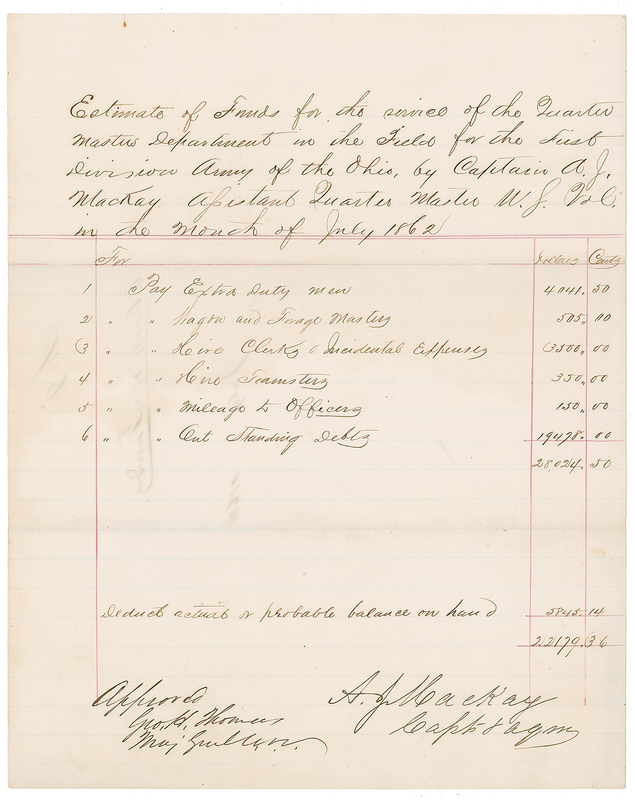 Estimate of Funds for the service of the Quarter
Master Department in the Field for the First
Division Army of the Ohio, by Captain A. J.
Mackay Assistant Quarter Master U. S. Vol.
in the Month of July 1862
For Dollars Cents
1 Pay Extra Duty men 4041. 50
2 " " Wagon and Forage Masters 505. 00
3 " " Hire Clerks & Incidental Expenses 3500. 00
4 " " Hire Teamsters 350. 00
5 " " Mileage to Officers 150. 00
6 " " Out Standing Debts 19478. 00
28,024. 50
Deduct actual or probable balance on hand 5845 14
22179. 36
Approved
Geo. H. Thomas
Maj Genl U.S.V.
A. J. Mackay
Capt & aqm